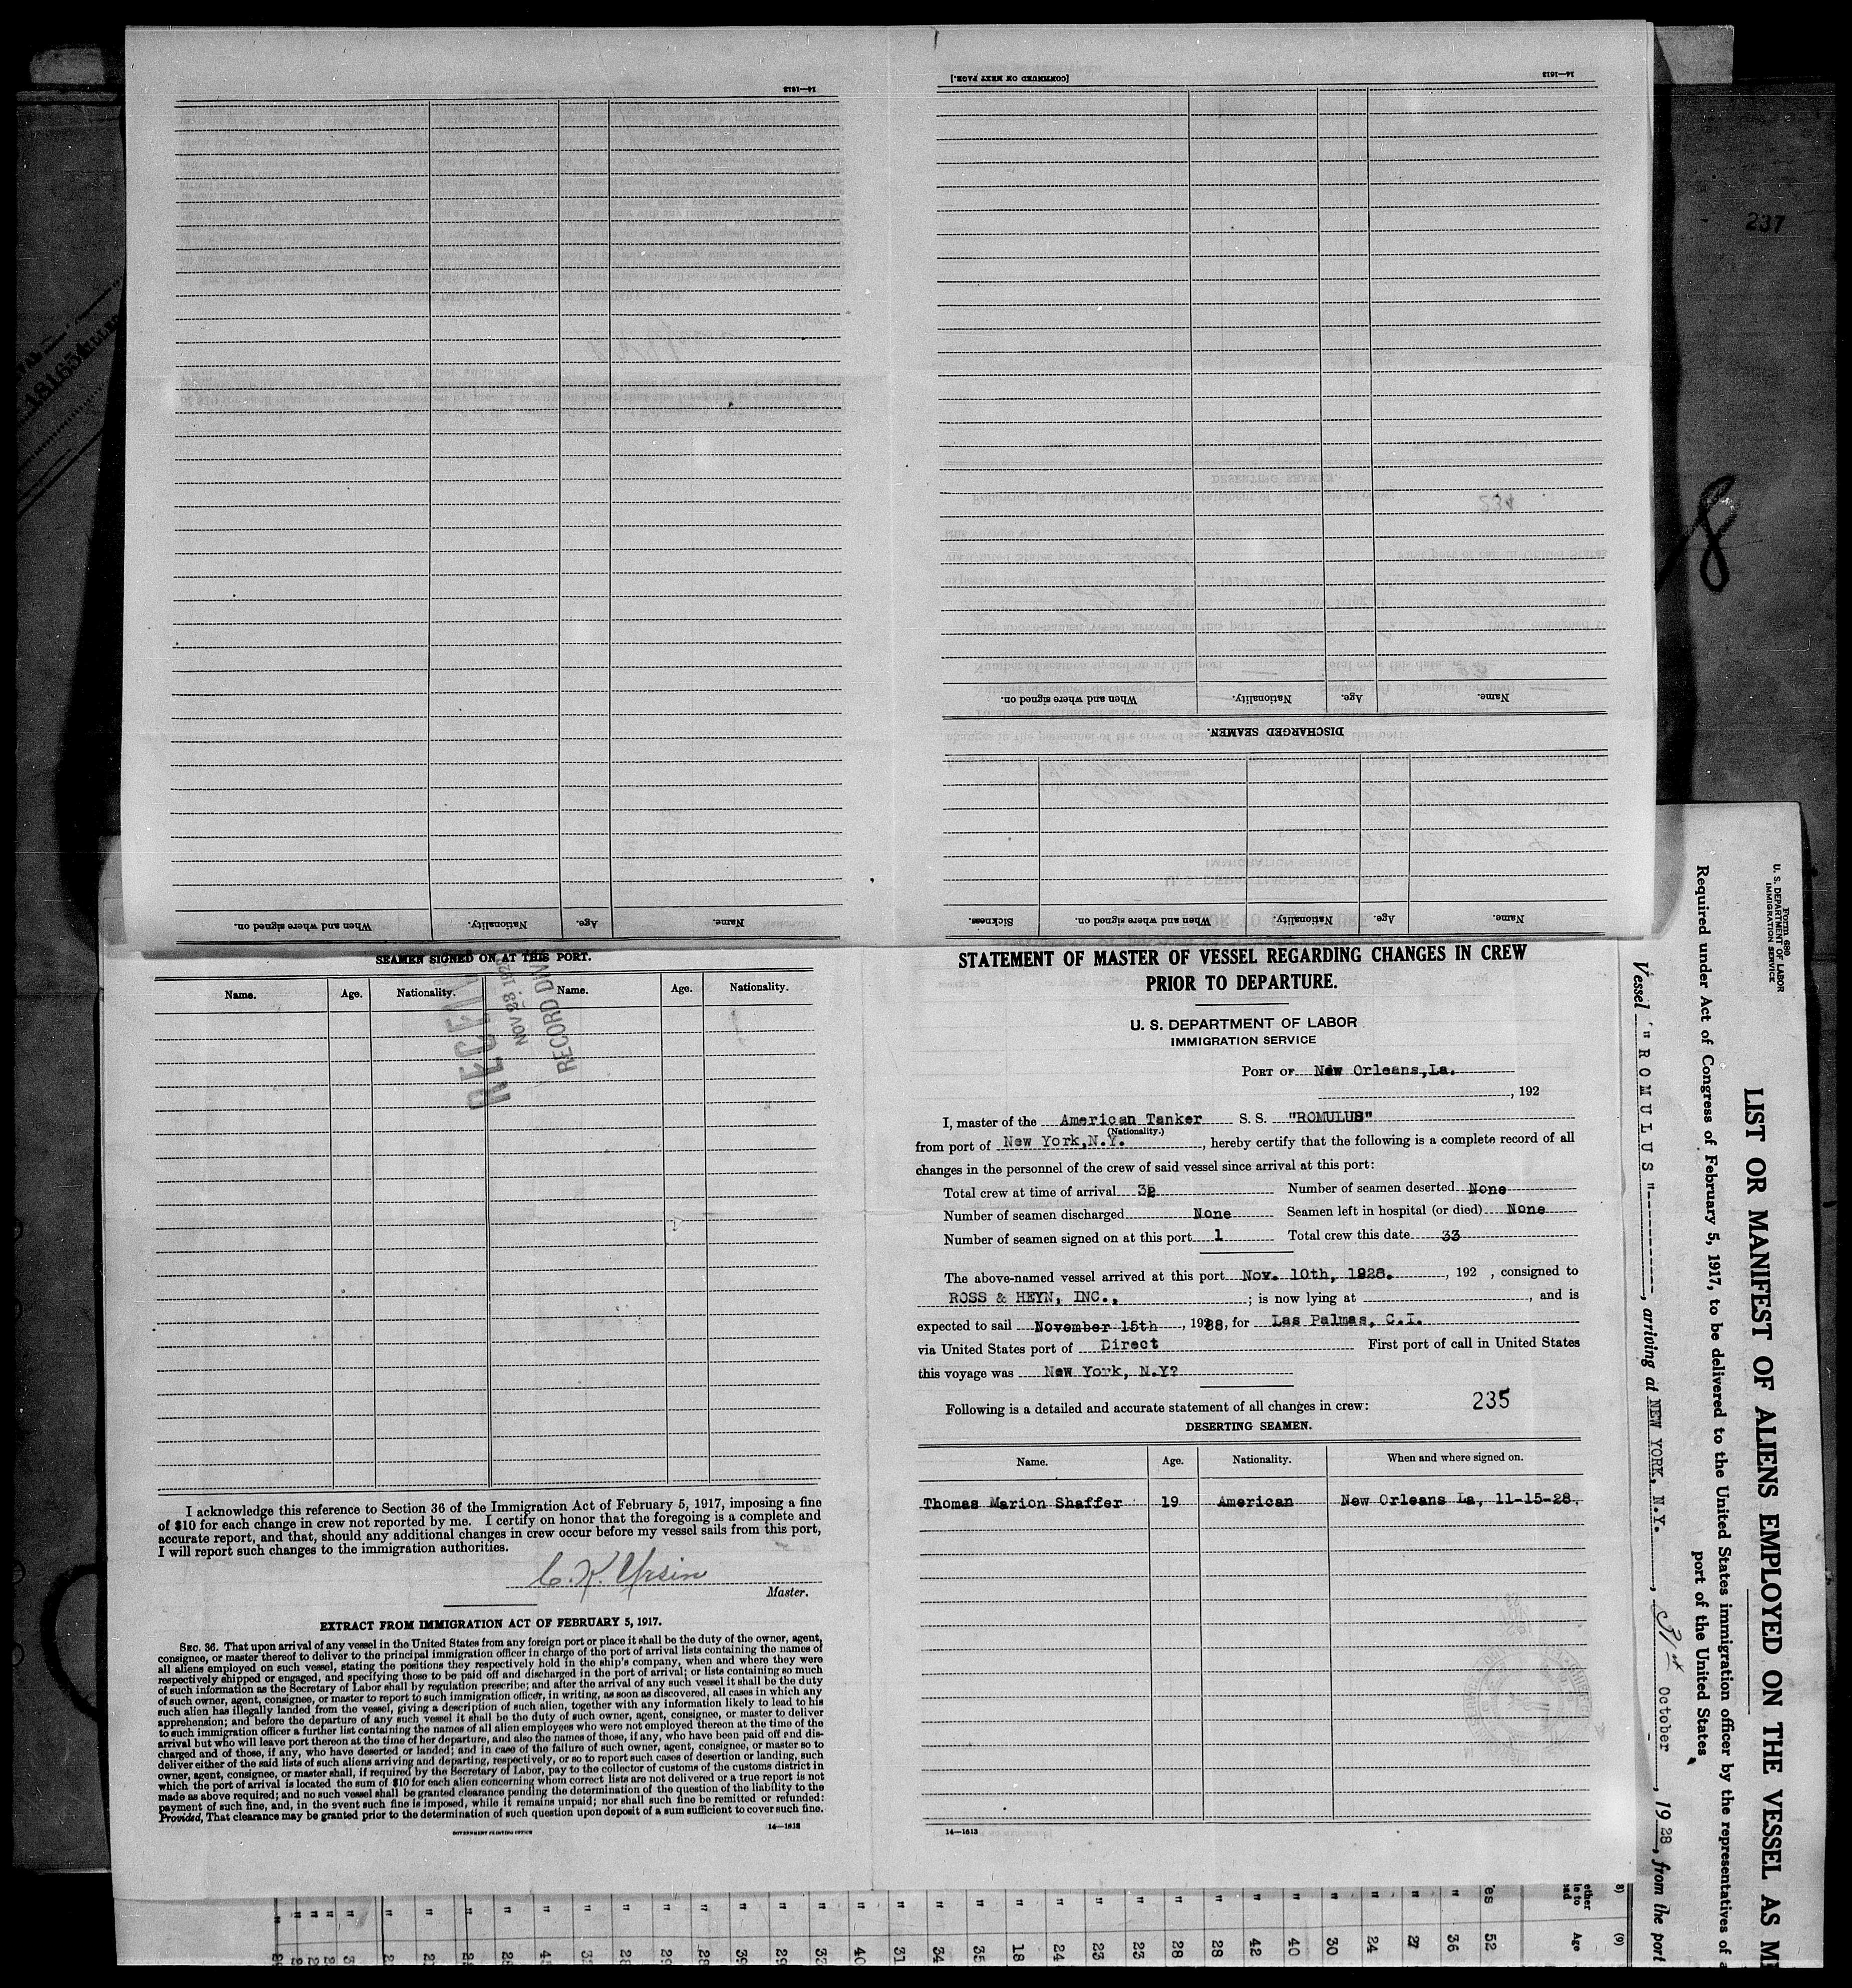 14—1613
[CONTINUED ON NEXT PAGE.]
14—1613
237
8
181654
When and where signed on.
Nationality.
Age.
Name.
When and where signed on.
Nationality.
Age.
Name.
DISCHARGED SEAMEN.
Sickness.
When and where signed on.
Nationality.
Age.
Name.
SEAMEN SIGNED ON AT THIS PORT.
Name. Age. Nationality. Name. Age. Nationality.
NOV 28 192
RECORD DIV
I acknowledge this reference to Section 36 of the Immigration Act of February 5, 1917, imposing a fine
of $10 for each change in crew not reported by me. I certify on honor that the foregoing is a complete and
accurate report, and that, should any additional changes in crew occur before my vessel sails from this port,
I will report such changes to the immigration authorities.
C. K. Ursin
Master.
EXTRACT FROM IMMIGRATION ACT OF FEBRUARY 5, 1917.
SEC. 36. That upon arrival of any vessel in the United States from any foreign port or place it shall be the duty of the owner, agent,
consignee, or master thereof to deliver to the principal immigration officer in charge of the port of arrival lists containing the names of
all aliens employed on such vessel, stating the positions they respectively hold in the ship's company, when and where they were
respectively shipped or engaged, and specifying those to be paid off and discharged in the port of arrival; or lists containing so much
of such information as the Secretary of Labor shall by regulation prescribe; and after the arrival of any such vessel it shall be the duty
of such owner, agent, consignee, or master to report to such immigration officer, in writing, as soon as discovered, all cases in which any
such alien has illegally landed from the vessel, giving a description of such alien, together with any information likely to lead to his
apprehension; and before the departure of any such vessel it shall be the duty of such owner, agent, consignee, or master to deliver
to such immigration officer a further list containing the names of all alien employees who were not employed thereon at the time of the
arrival but who will leave port thereon at the time of her departure, and also the names of those, if any, who have been paid off and dis-
charged and of those, if any, who have deserted or landed; and in case of the failure of such owner, agent, consignee, or master so to
deliver either of the said lists of such aliens arriving and departing, respectively, or so to report such cases of desertion or landing, such
owner, agent, consignee, or master shall, if required by the Secretary of Labor, pay to the collector of customs of the customs district in
which the port of arrival is located the sum of $10 for each alien concerning whom correct lists are not delivered or a true report is not
made as above required; and no such vessel shall be granted clearance pending the determination of the question of the liability to the
payment of such fine, and, in the event such fine is imposed, while it remains unpaid; nor shall such fine be remitted or refunded:
Provided, That clearance may be granted prior to the determination of such question upon deposit of a sum sufficient to cover such fine.
GOVERNMENT PRINTING OFFICE
14—1613
STATEMENT OF MASTER OF VESSEL REGARDING CHANGES IN CREW
PRIOR TO DEPARTURE.
U. S. DEPARTMENT OF LABOR
IMMIGRATION SERVICE
PORT OF New Orleans,La.
, 192
I, master of the American Tanker S. S. "ROMULUS"
(Nationality.)
from port of New York,N.Y. , hereby certify that the following is a complete record of all
changes in the personnel of the crew of said vessel since arrival at this port:
Total crew at time of arrival 32 Number of seamen deserted None
Number of seamen discharged None Seamen left in hospital (or died) None
Number of seamen signed on at this port 1 Total crew this date 33
The above-named vessel arrived at this port Nov. 10th, 1928. , 192 , consigned to
ROSS & HEYN, INC., ; is now lying at , and is
expected to sail November 15th , 1928, for Las Palmas, C.I.
via United States port of Direct First port of call in United States
this voyage was New York, N.Y?
235
Following is a detailed and accurate statement of all changes in crew:
DESERTING SEAMEN.
Name. Age. Nationality. When and where signed on.
Thomas Marion Shaffer 19 American New Orleans La, 11-15-28.
14—1613
Form 680
U. S. DEPARTMENT OF LABOR
IMMIGRATION SERVICE
LIST OR MANIFEST OF ALIENS EMPLOYED ON THE VESSEL AS ME
Required under Act of Congress of February 5, 1917, to be delivered to the United States immigration officer by the representatives of a
port of the United States
Vessel "ROMULUS" , arriving at NEW YORK, N.Y. , 31st October , 1928, from the port
(9)
Age
52
36
27
24
30
40
42
28
28
23
23
24
18
35
34
31
40